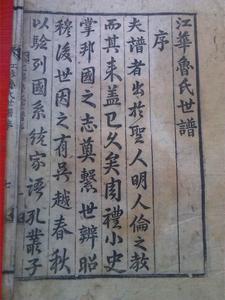 江華魯氏世譜
序
夫譜者出於聖人明人倫之教
而其来盖已久矣周禮小史
掌邦國之志奠繫世辨昭
穆後世因之有吳越春秋
以驗列國系統家語孔叢子